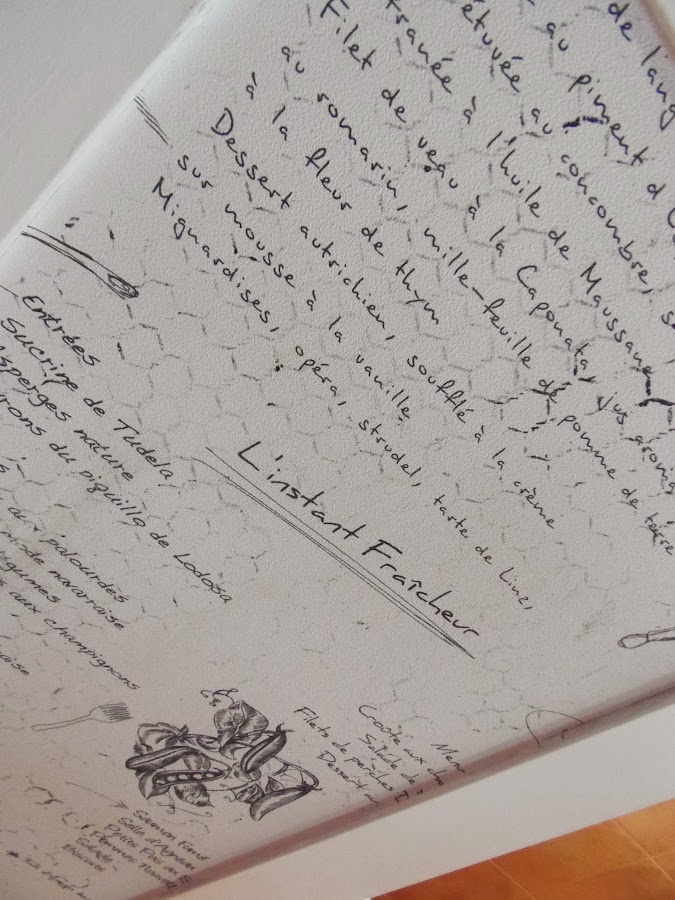 de l'ang
au piment d
étuvée au concombre, s
tranée à l'huile de Maussane
Filet de veau à la Caponata, jus aroma
au romarin, mille-feuille de pomme de terre
à la fleur de thym
Dessert autrichien, soufflé à la crème
sur mousse à la vanille
Mignardises, opéra, strudel, tarte de Linz,
L'instant Fraîcheur
Entrées
Sucrine de Tudela
Asperges nature
rons du piquillo de Lodosa
aux palourdes
mode navarraise
égumes
aux champignons
aise
Men
Croûte aux cha
Salade de
Filets de perches
Dessert
Saumon Fumé
Selle d'Agneau
Petits Pois au
Pommes
Salade
Biscuits